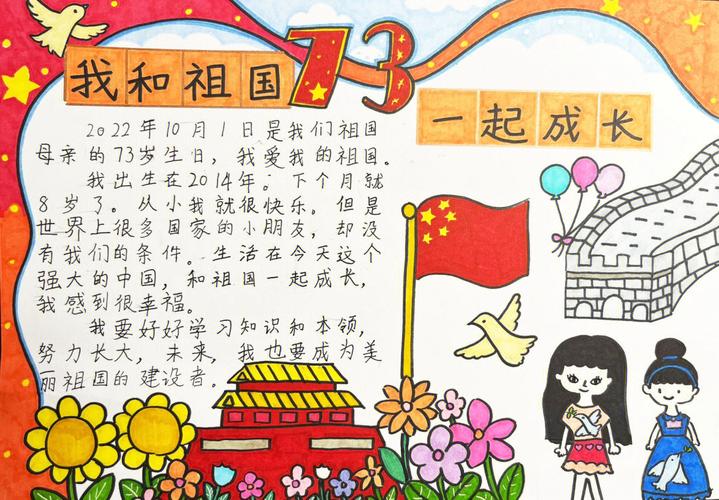 我和祖国73
一起成长
2022年10月1日是我们祖国
母亲的73岁生日，我爱我的祖国。
我出生在2014年。下个月就
8岁了。从小我就很快乐。但是
世界上很多国家的小朋友，却没
有我们的条件。生活在今天这个
强大的中国，和祖国一起成长，
我感到很幸福。
我要好好学习知识和本领，
努力长大，未来，我也要成为美
丽祖国的建设者。